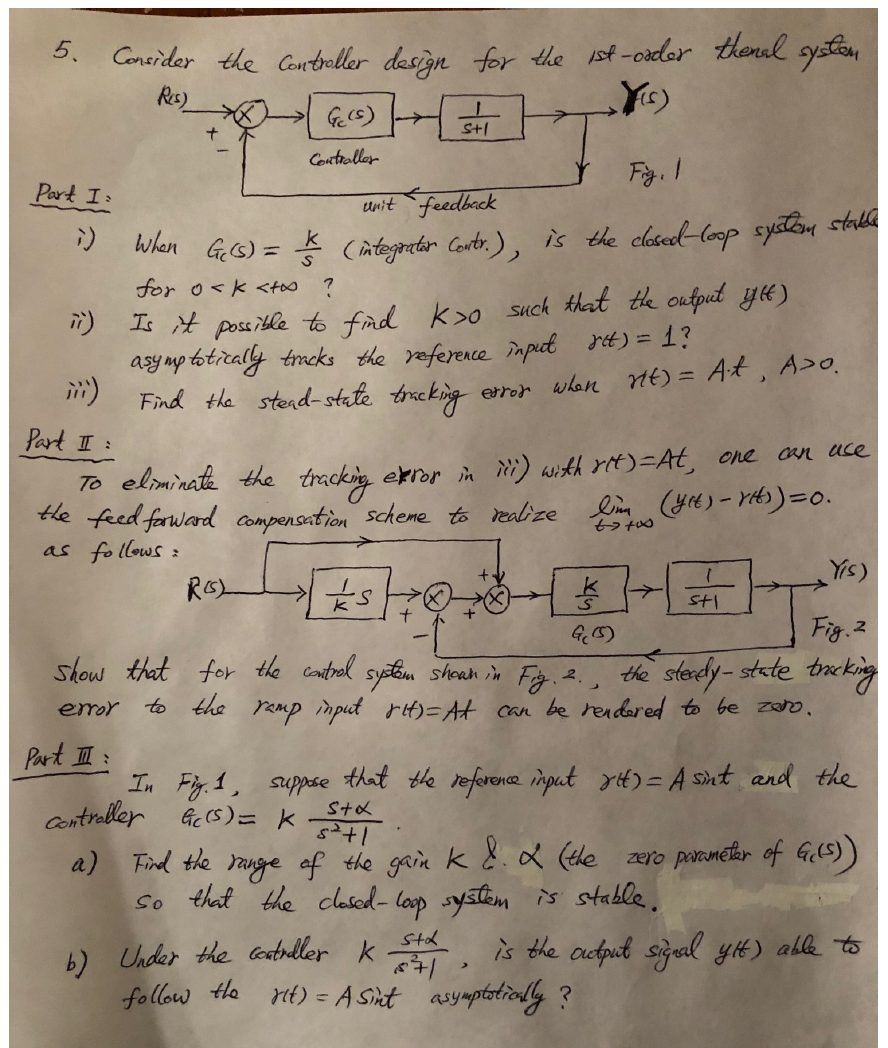 5. Consider the Controller design for the 1st-order themal system
R(s) + - Gc(s) 1/(s+1) Y(s)
Controller
Fig. 1
unit feedback
Part I:
i) When Gc(s) = k/s (integrator Contr.), is the closed-loop system stable
for 0 < k < +∞ ?
ii) Is it possible to find K>0 such that the output y(t)
asymptotically tracks the reference input r(t) = 1?
iii) Find the stead-state tracking error when r(t) = A·t, A>0.
Part II:
To eliminate the tracking error in iii) with r(t)=At, one can use
the feedforward compensation scheme to realize lim t→+∞ (y(t) - r(t))=0.
as follows:
R(s) 1/k s + - + + k/s 1/(s+1) Y(s)
Gc(s)
Fig. 2
Show that for the control system shown in Fig. 2., the steady-state tracking
error to the ramp input r(t)=At can be rendered to be zero.
Part III:
In Fig. 1, suppose that the reference input r(t) = A sint and the
controller Gc(s) = K (s+α)/(s²+1).
a) Find the range of the gain K & α (the zero parameter of Gc(s))
so that the closed-loop system is stable.
b) Under the controller K (s+α)/(s²+1), is the output signal y(t) able to
follow the r(t) = A Sint asymptotically ?